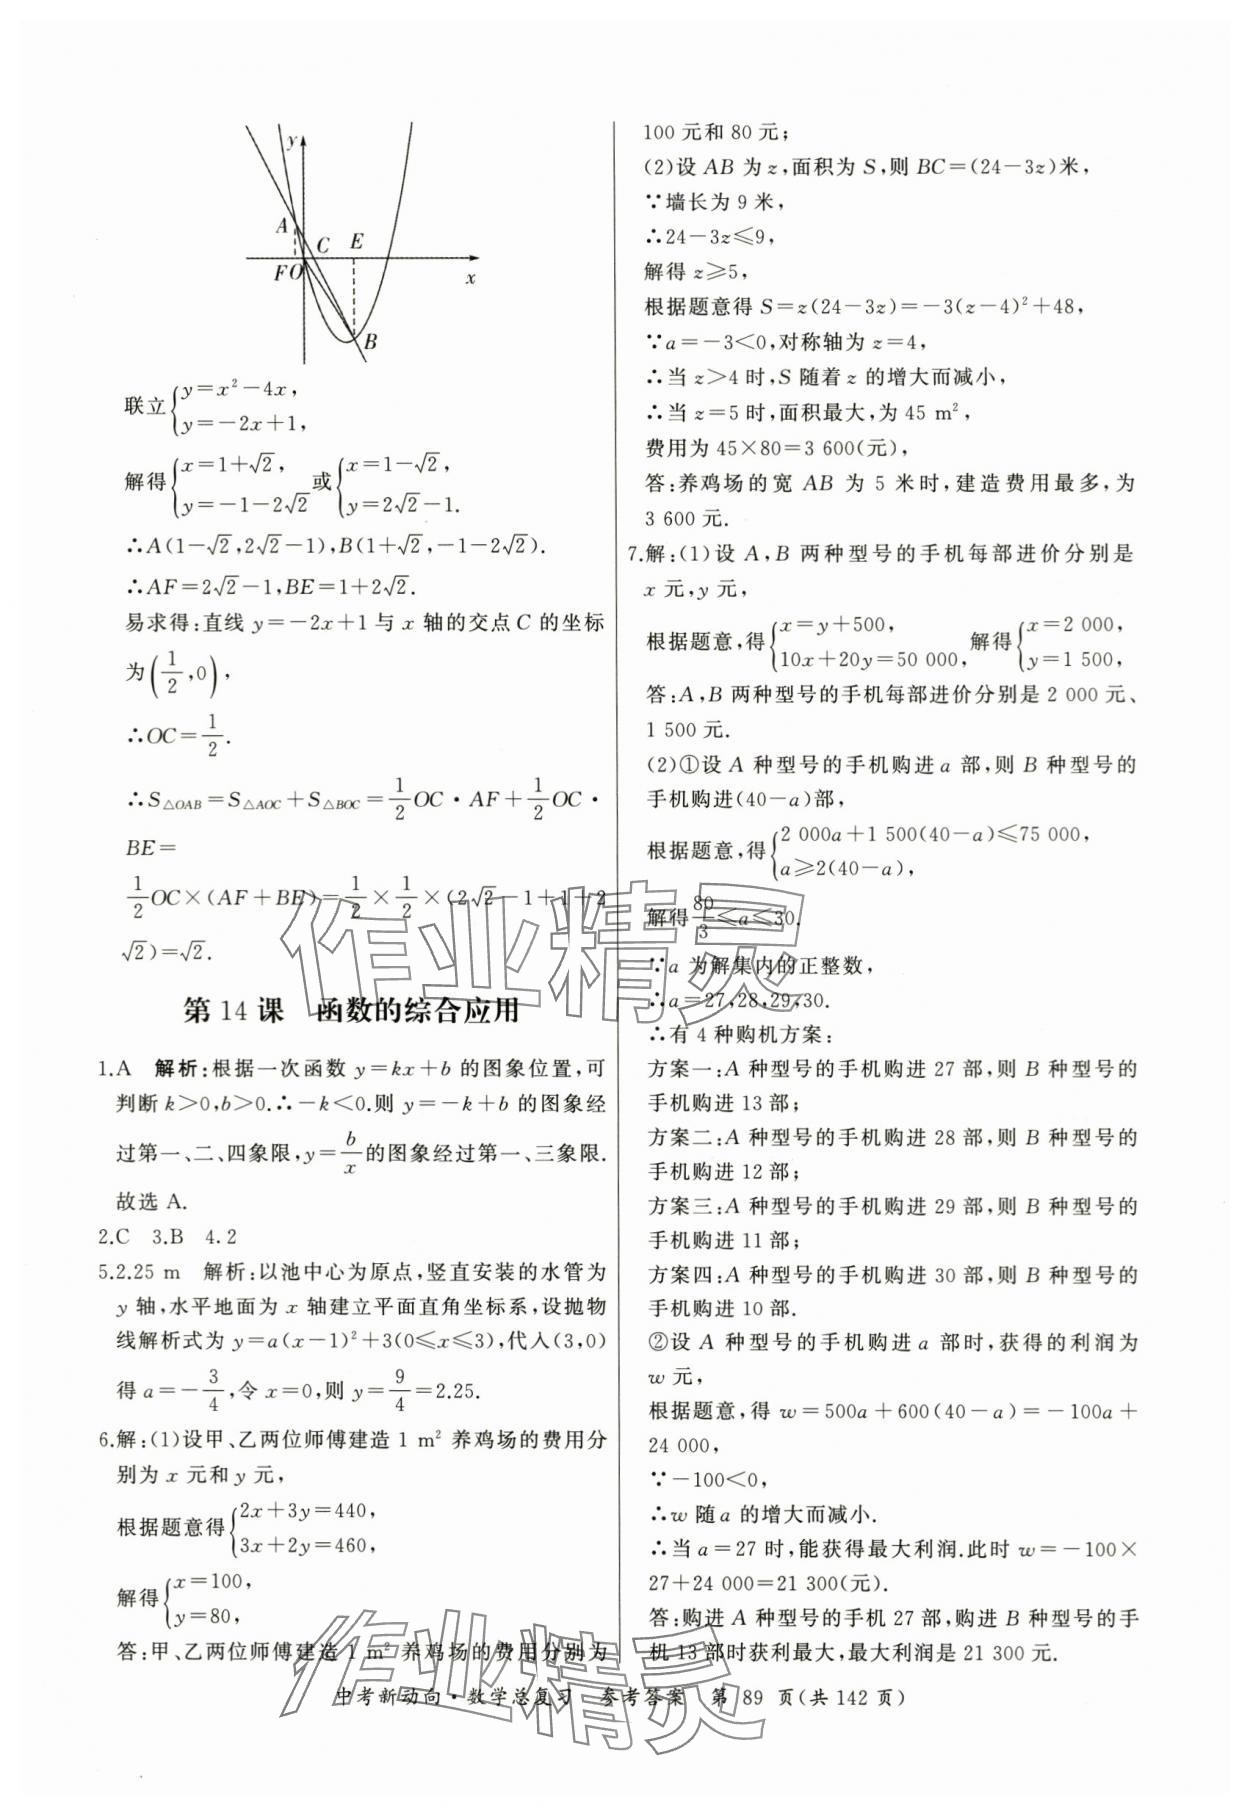 y
A
C
E
FO
x
B
联立{y=x²-4x,
y=-2x+1,
解得{x=1+√2, 或{x=1-√2,
y=-1-2√2 y=2√2-1.
∴A(1-√2,2√2-1),B(1+√2,-1-2√2).
∴AF=2√2-1,BE=1+2√2.
易求得:直线 y=-2x+1 与 x 轴的交点 C 的坐标
为(1/2,0),
∴OC=1/2.
∴S△OAB=S△AOC+S△BOC=1/2OC·AF+1/2OC·
BE=
1/2OC×(AF+BE)=1/2×1/2×(2√2-1+1+2
√2)=√2.
第 14 课 函数的综合应用
1.A 解析:根据一次函数 y=kx+b 的图象位置,可
判断 k>0,b>0.∴-k<0.则 y=-k+b 的图象经
过第一、二、四象限,y=b/x的图象经过第一、三象限.
故选 A.
2.C 3.B 4.2
5.2.25 m 解析:以池中心为原点,竖直安装的水管为
y 轴,水平地面为 x 轴建立平面直角坐标系,设抛物
线解析式为 y=a(x-1)²+3(0≤x≤3),代入(3,0)
得 a=-3/4,令 x=0,则 y=9/4=2.25.
6.解:(1)设甲、乙两位师傅建造 1 m² 养鸡场的费用分
别为 x 元和 y 元,
根据题意得{2x+3y=440,
3x+2y=460,
解得{x=100,
y=80,
答:甲、乙两位师傅建造 1 m² 养鸡场的费用分别为
100 元和 80 元;
(2)设 AB 为 z,面积为 S,则 BC=(24-3z)米,
∵墙长为 9 米,
∴24-3z≤9,
解得 z≥5,
根据题意得 S=z(24-3z)=-3(z-4)²+48,
∵a=-3<0,对称轴为 z=4,
∴当 z>4 时,S 随着 z 的增大而减小,
∴当 z=5 时,面积最大,为 45 m²,
费用为 45×80=3 600(元),
答:养鸡场的宽 AB 为 5 米时,建造费用最多,为
3 600 元.
7.解:(1)设 A,B 两种型号的手机每部进价分别是
x 元,y 元,
根据题意,得{x=y+500, 解得{x=2 000,
10x+20y=50 000, y=1 500,
答:A,B 两种型号的手机每部进价分别是 2 000 元、
1 500 元.
(2)①设 A 种型号的手机购进 a 部,则 B 种型号的
手机购进(40-a)部,
根据题意,得{2 000a+1 500(40-a)≤75 000,
a≥2(40-a),
解得80/3≤a≤30.
∵a 为解集内的正整数,
∴a=27,28,29,30.
∴有 4 种购机方案:
方案一:A 种型号的手机购进 27 部,则 B 种型号的
手机购进 13 部;
方案二:A 种型号的手机购进 28 部,则 B 种型号的
手机购进 12 部;
方案三:A 种型号的手机购进 29 部,则 B 种型号的
手机购进 11 部;
方案四:A 种型号的手机购进 30 部,则 B 种型号的
手机购进 10 部.
②设 A 种型号的手机购进 a 部时,获得的利润为
w 元,
根据题意,得 w=500a+600(40-a)=-100a+
24 000,
∵-100<0,
∴w 随 a 的增大而减小.
∴当 a=27 时,能获得最大利润.此时 w=-100×
27+24 000=21 300(元).
答:购进 A 种型号的手机 27 部,购进 B 种型号的手
机 13 部时获利最大,最大利润是 21 300 元.
中考新动向·数学总复习 参考答案 第 89 页(共 142 页)
作业精灵
作业精灵